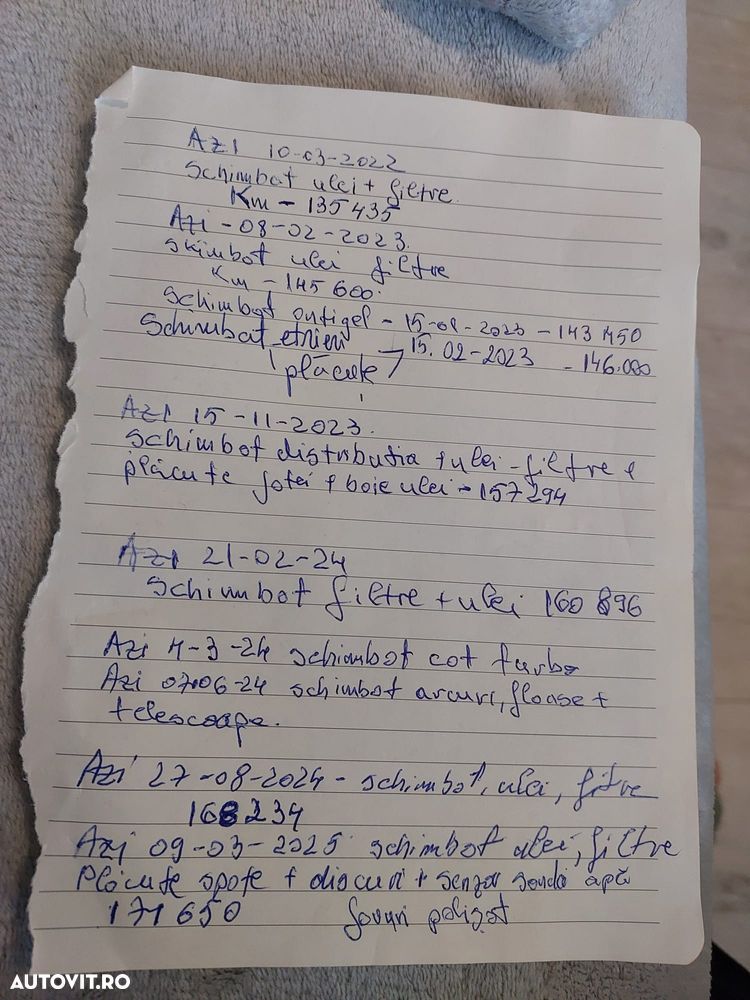 AZI 10-03-2022
Schimbat ulei + filtre.
Km - 135 435
Azi - 08-02-2023.
skimbat ulei filtre
Km - 145 600.
Schimbat antigel - 15-01-2023 - 143 450
Schimbat etrieri 15.02-2023 - 146.000
plăcute
AZI 15-11-2023.
Schimbat distributia + ulei - filtre +
plăcute fatei + baie ulei - 157 294
AZI 21-02-24
Schimbat filtre + ulei 160 896
Azi 4-3-24 schimbat cot turbo
Azi 07.06-24 schimbat arcuri, flanse +
telescoape.
Azi 27-08-2024 - schimbat, ulei, fitre
168234
Azi 09-03-2025 schimbat ulei, filtre
Plăcute spate + discuri + senzor sondă apă
171 650 faruri polisat
AUTOVIT.RO